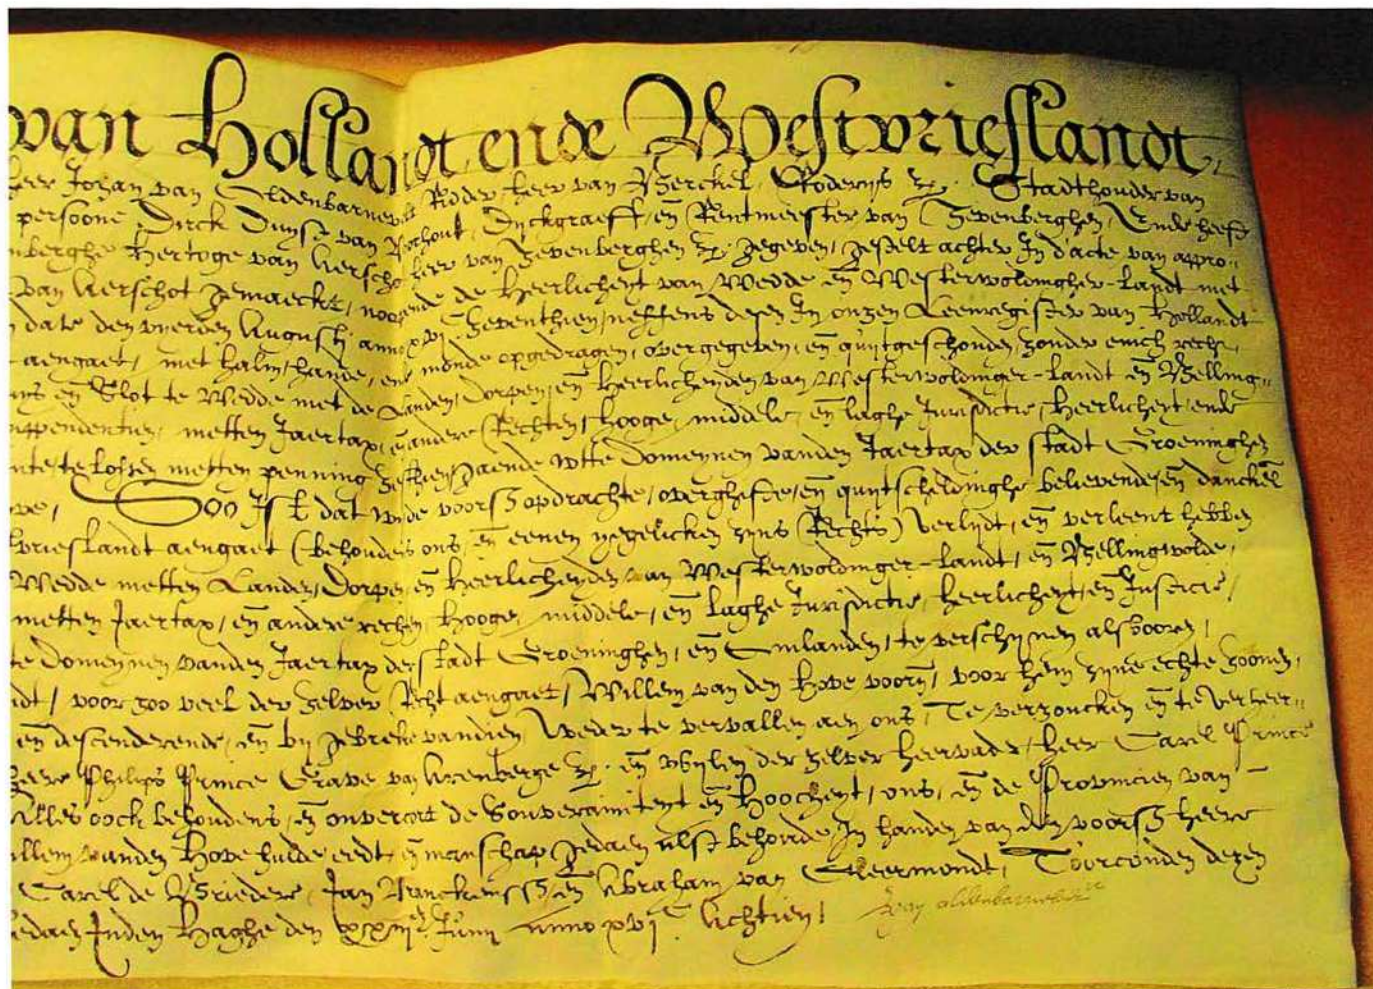 van Hollandt ende Westvrieslandt
heer Johan van Oldenbarnevelt Ridder heer van Roderys Stadthouder van
persoone Dirck Duyst van Dyckgraeff en Rentmeester van Sevenberghen Ende heeft
berghe Hertoge van Aerschot heer van Sevenberghen gegeven, gestelt achter In d'acte van appro-
van Aerschot gemaeckt, de Heerlicheyt van Wedde en Westerwoldingher-landt met
date den vierden Augusti anno xvi C zeventhien, neffens desen In onzen Leenregister van Hollandt
aengaet, met halm, hande, ende monde opgedragen, overgegeven, en quijtgeschonden, zonder enich recht,
en Slot te Wedde met de Landen, Dorpen, en Heerlicheyden van Westerwoldinger-landt en Belling-
appendentien, metten Jaertax, en andere Rechten, hooge, middele, en laghe Jurisdictie, Heerlicheyt, ende
te lossen metten penning zesthien, staende wtte Domeynen vanden Jaertax der stadt Groeninghen
Soo Ist dat wij de voorsz opdrachte, overghifte, en quijtscheldinghe believende, en danckel
vrieslandt aengaet (behoudens ons, en eenen yegelicken zyns Rechts) Verlijdt, en verleent hebben
Wedde metten Landen, Dorpen, en Heerlicheyden van Westerwoldinger-landt, en Bellingwolde,
metten Jaertax, en andere rechten, hooge, middele, en laghe Jurisdictie, heerlicheyt, en Justicie,
te Domeynen vanden Jaertax der stadt Groeninghen, en Omlanden, te verschynen als vooren,
voor zoo veel der zelver Recht aengaet, Willem van den Hove voorn, voor hem zyne echte zoonen,
en descenderende, en bij gebreke van dien Weder te vervallen aen ons, Te verzoucken en te verheer-
heere Philips Prince Grave van Arenberge en wijlen der zelver heer vader, heer Carel Prince
Alles oock behoudens, en onvercort de Souverainiteyt en Hoocheyt, ons, en de Provincien van
Willem vanden Hove hulde, eedt, en manschap gedaen alst behoorde In handen van den voorsz heere
Carel de Jan Franckenssz en Abraham van Toirconden dezen
gedaen Inden Haghe den xxiij Junij anno xvi C achtien,